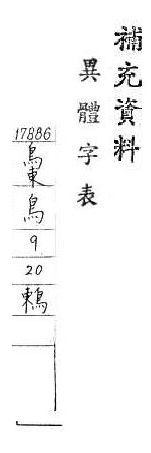 補充資料
異體字表
17886
鳥
9
20
鶫